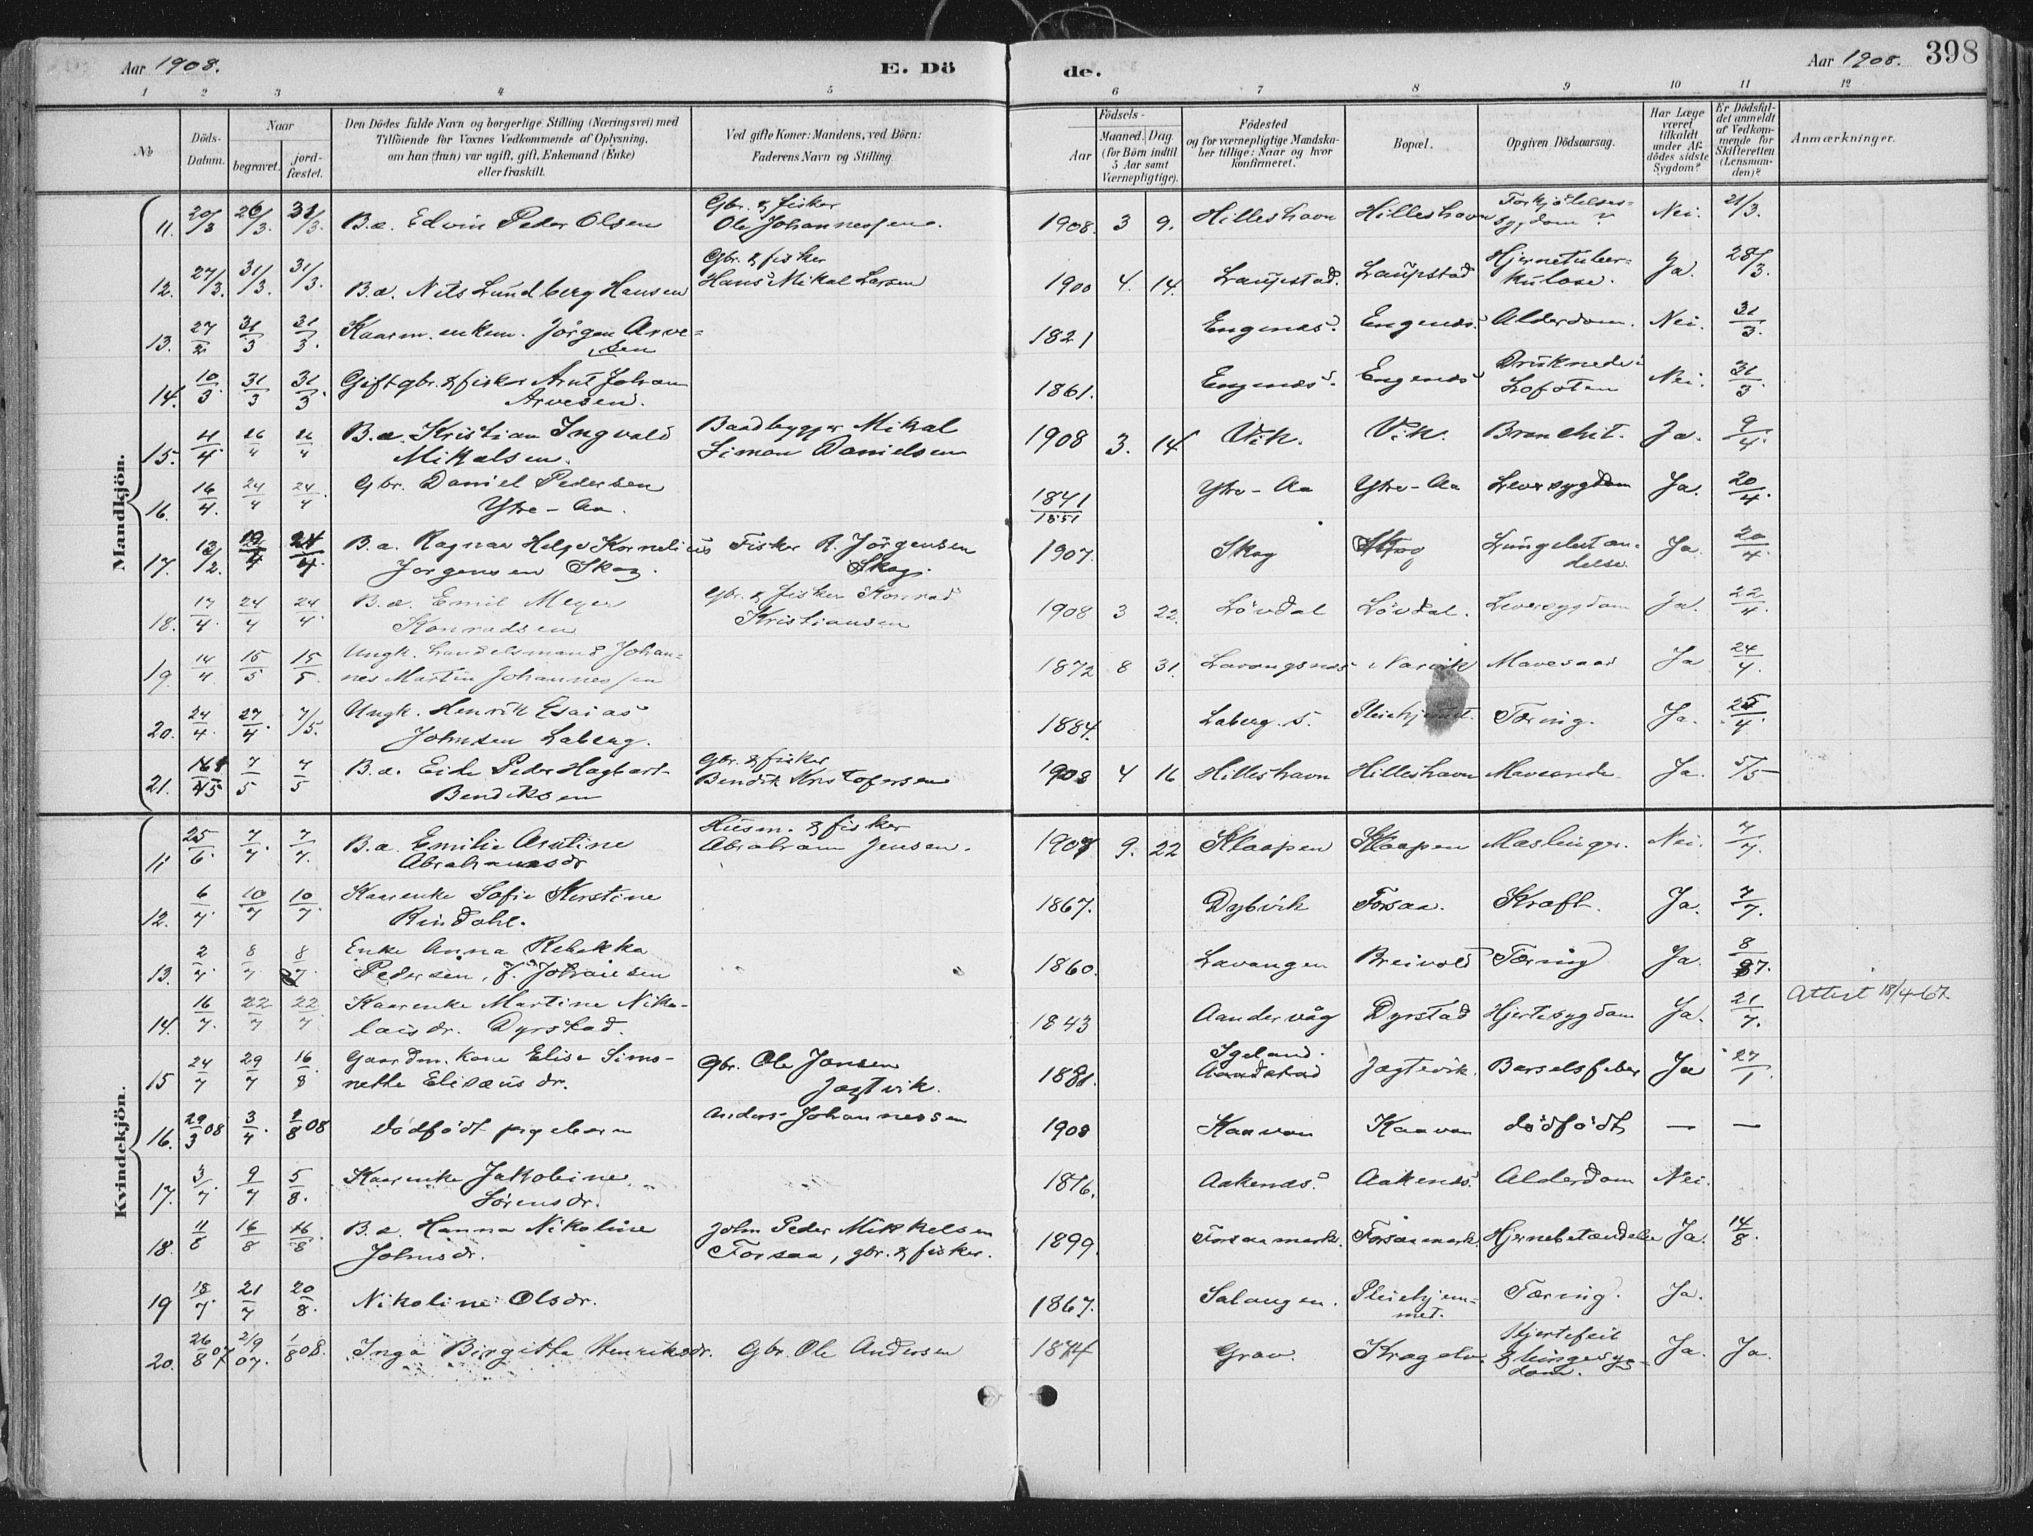 Aar 1908.
E. Dö
de.
Aar 1908. 398
1 2 3 4 5 6 7 8 9 10 11 12
No
Döds-Datum.
Naar
begravet.
jord-fæstet.
Den Dödes fulde Navn og borgerlige Stilling (Næringsvei) med
Tilföiende for Voxnes Vedkommende af Oplysning,
om han (hun) var ugift, gift, Enkemand (Enke)
eller fraskilt.
Ved gifte Koner: Mandens, ved Börn:
Faderens Navn og Stilling.
Födsels-
Aar
Maaned. Dag.
(for Börn indtil
5 Aar samt
Værnepligtige).
Födested
og for værnepligtige Mandska-
ber tillige: Naar og hvor
konfirmeret.
Bopæl.
Opgiven Dödsaarsag.
Har Læge
været
tilkaldt
under Af-
dödes sidste
Sygdom?
Er Dödsfal-
det anmeldt
af Vedkom-
mende for
Skifteretten
(Lensman-
den)?
Anmærkninger.
Mandkjön.
11. 20/3 26/3. 31/3. B.a. Edvin Peder Olsen Gbr. & fisker Ole Johannessen. 1908. 3 9. Hilleshavn Hilleshavn Forkjölelses-sygdom? Nei. 21/3.
12. 27/3. 31/3. 31/3. B.a. Nils Lundberg Hansen Gbr. & fisker Hans Mikal Larsen 1900 4. 14. Laupstad. Laupstad Hjernetuber-kulose. Ja. 28/3.
13. 27/2 31/3 31/3. Kaarm. enkem. Jörgen Arve-sen 1821 Engenæs. Engenæs. Alderdom. Nei. 31/3.
14. 10/3. 31/3 31/3. Gift gbr. & fisker Arnt Johan Arvesen. 1861. Engenæs. Engenæs Druknede i Lofoten Nei. 31/3.
15. 4/4. 26/4 26/4 B.a. Kristian Ingvald Mikalsen. Baadbygger Mikal Simon Danielsen 1908 3. 14 Vik. Vik. Bronchit. Ja. 9/4.
16. 16/4. 24/4 24/4. Gbr. Daniel Pedersen Ytre-Aa. 1841 1851 Ytre-Aa Ytre-Aa Leversygdom Ja. 20/4.
17. 13/2. 19/4 24/4. B.a. Ragnar Helge Kornelius Jörgensen Skog. Fisker R. Jörgensen Skog. 1907. Skog Skog Lungebetæn-delse Ja. 20/4.
18. 17/4. 24/4 24/4. B.a. Emil Meyer Konradsen Gbr. & fisker Konrad Kristiansen 1908 3 22. Lövdal Lövdal. Leversygdom Ja. 22/4.
19. 14/4 15/5 15/5 Ungk. handelsmand Johan-nes Martin Johannessen 1872 8 31. Lavangsnæs Narvik Mavesaar Ja 24/4.
20. 24/4. 27/4. 7/5. Ungk. Henrik Esaias Johnsen Laberg. 1884. Laberg. S. Pleiehjemmet. Tæring. Ja. 25/4.
21. 7/5 7/5 B.a. Peder Hagbart Bendiksen Gbr. & fisker Bendik Kristofersen 1908 4 16 Hilleshavn Hilleshavn Maveonde Ja. 5/5
Kvindekjön.
11 25/6. 7/7. 7/7. B.a. Emilie Abrahamsdr Husm. & fisker Abraham Jensen. 1907 9. 22 Klaapen Klaapen Mæslinger. Nei. 7/7.
12. 6/7. 10/7 10/7. Kaarenke Sofie Kirstine Rindahl. 1867. Dybvik Forsaa. Kræft. Ja. 7/7.
13. 2/7. 8/7 8/7. Enke Anna Rebekka Pedersen, f. Johansen 1860. Lavangen Breivold Tæring Ja. 8/7.
14. 16/7. 22/7 22/7. Kaarenke Martine Niko-laisdr. Dyrstad. 1843 Aandervåg Dyrstad Hjertesygdom Ja. 21/7. Attest 18/4-67.
15 24/7 29/7 16/8 Gaardm. kone Elise Simo-nette Elisæusdr. Gbr. Ole Jensen Jægtvik. 1881. Igeland. Aandstad Jægtvik. Barselsfeber Ja 27/1.
16. 29/3 08 3/4. 2/8 08 Dödfödt pigebarn Anders Johannessen 1908 Kaavan Kaavan dödfödt — —
17. 3/7. 9/7 5/8. Kaarenke Jakobine Sörensdr. 1816. Aakenæs. Aakenæs. Alderdom Nei.
18. 11/8 16/8 16/8. B.a. Hanna Nikoline Johnsdr. John Peder Mikkelsen Forsaa, gbr. & fisker. 1899. Forsaamark. Forsaamark. Hjernebetændelse Ja. 14/8.
19 18/7. 21/7 20/8. Nikoline Olsdr. 1867. Salangen. Pleiehjem-met. Tæring. Ja.
20. 26/8 07 2/9 07. 1/8 08. Inga Birgitha Henriksdr. Gbr. Ole Andersen 1874 Grav. Kragelv. Hjertefeil & lungesyg-dom. Ja. Ja.